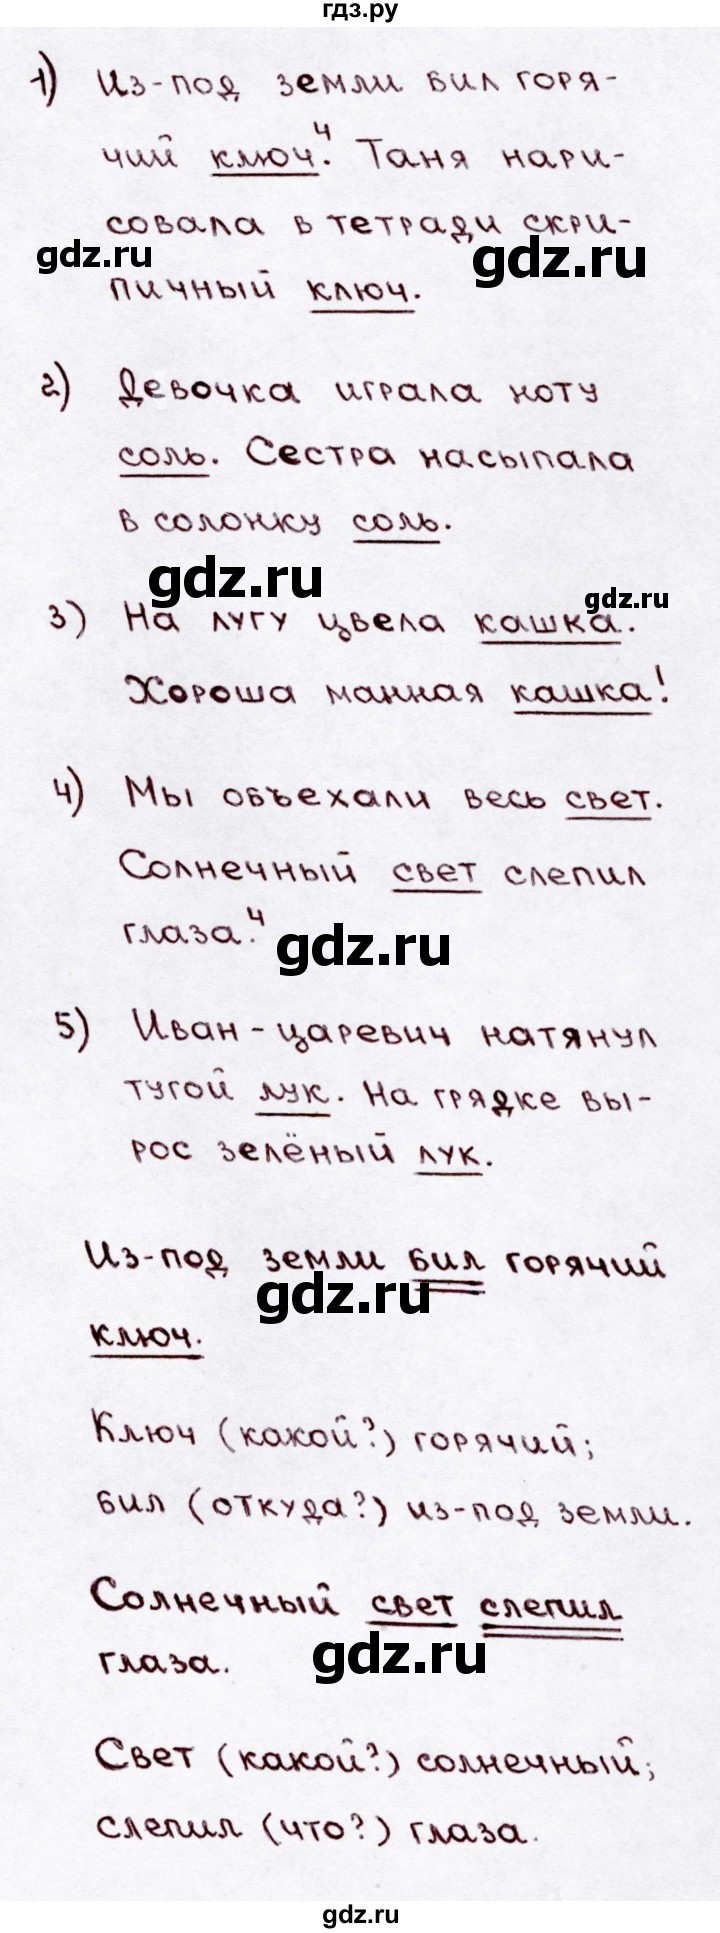 гдз.ру
1) Из-под земли бил горя-
чий ключ.⁴ Таня нари-
совала в тетради скри-
gdz.ru gdz.ru
пичный ключ.
2) Девочка играла ноту
соль. Сестра насыпала
в солонку соль.
gdz.ru gdz.ru
3) На лугу цвела кашка.
Хороша манная кашка!
4) Мы объехали весь свет.
Солнечный свет слепил
глаза.⁴
gdz.ru
5) Иван-царевич натянул
тугой лук. На грядке вы-
рос зелёный лук.
Из-под земли бил горячий
gdz.ru
ключ.
Ключ (какой?) горячий;
бил (откуда?) из-под земли.
Солнечный свет слепил
gdz.ru
глаза.
Свет (какой?) солнечный;
слепил (что?) глаза.
gdz.ru